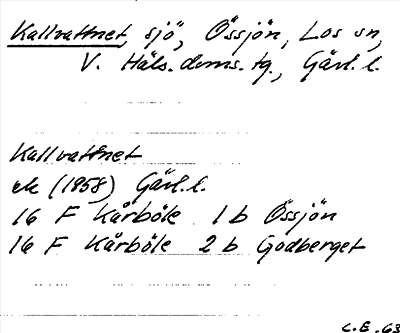 Kallvattnet, sjö, Össjön, Los sn,
V. Häls. doms. tg., Gävl. l.
Kallvattnet
ek (1958) Gävl. l.
16 F Kårböle 1 b Össjön
16 F Kårböle 2 b Godberget
C.E. 63